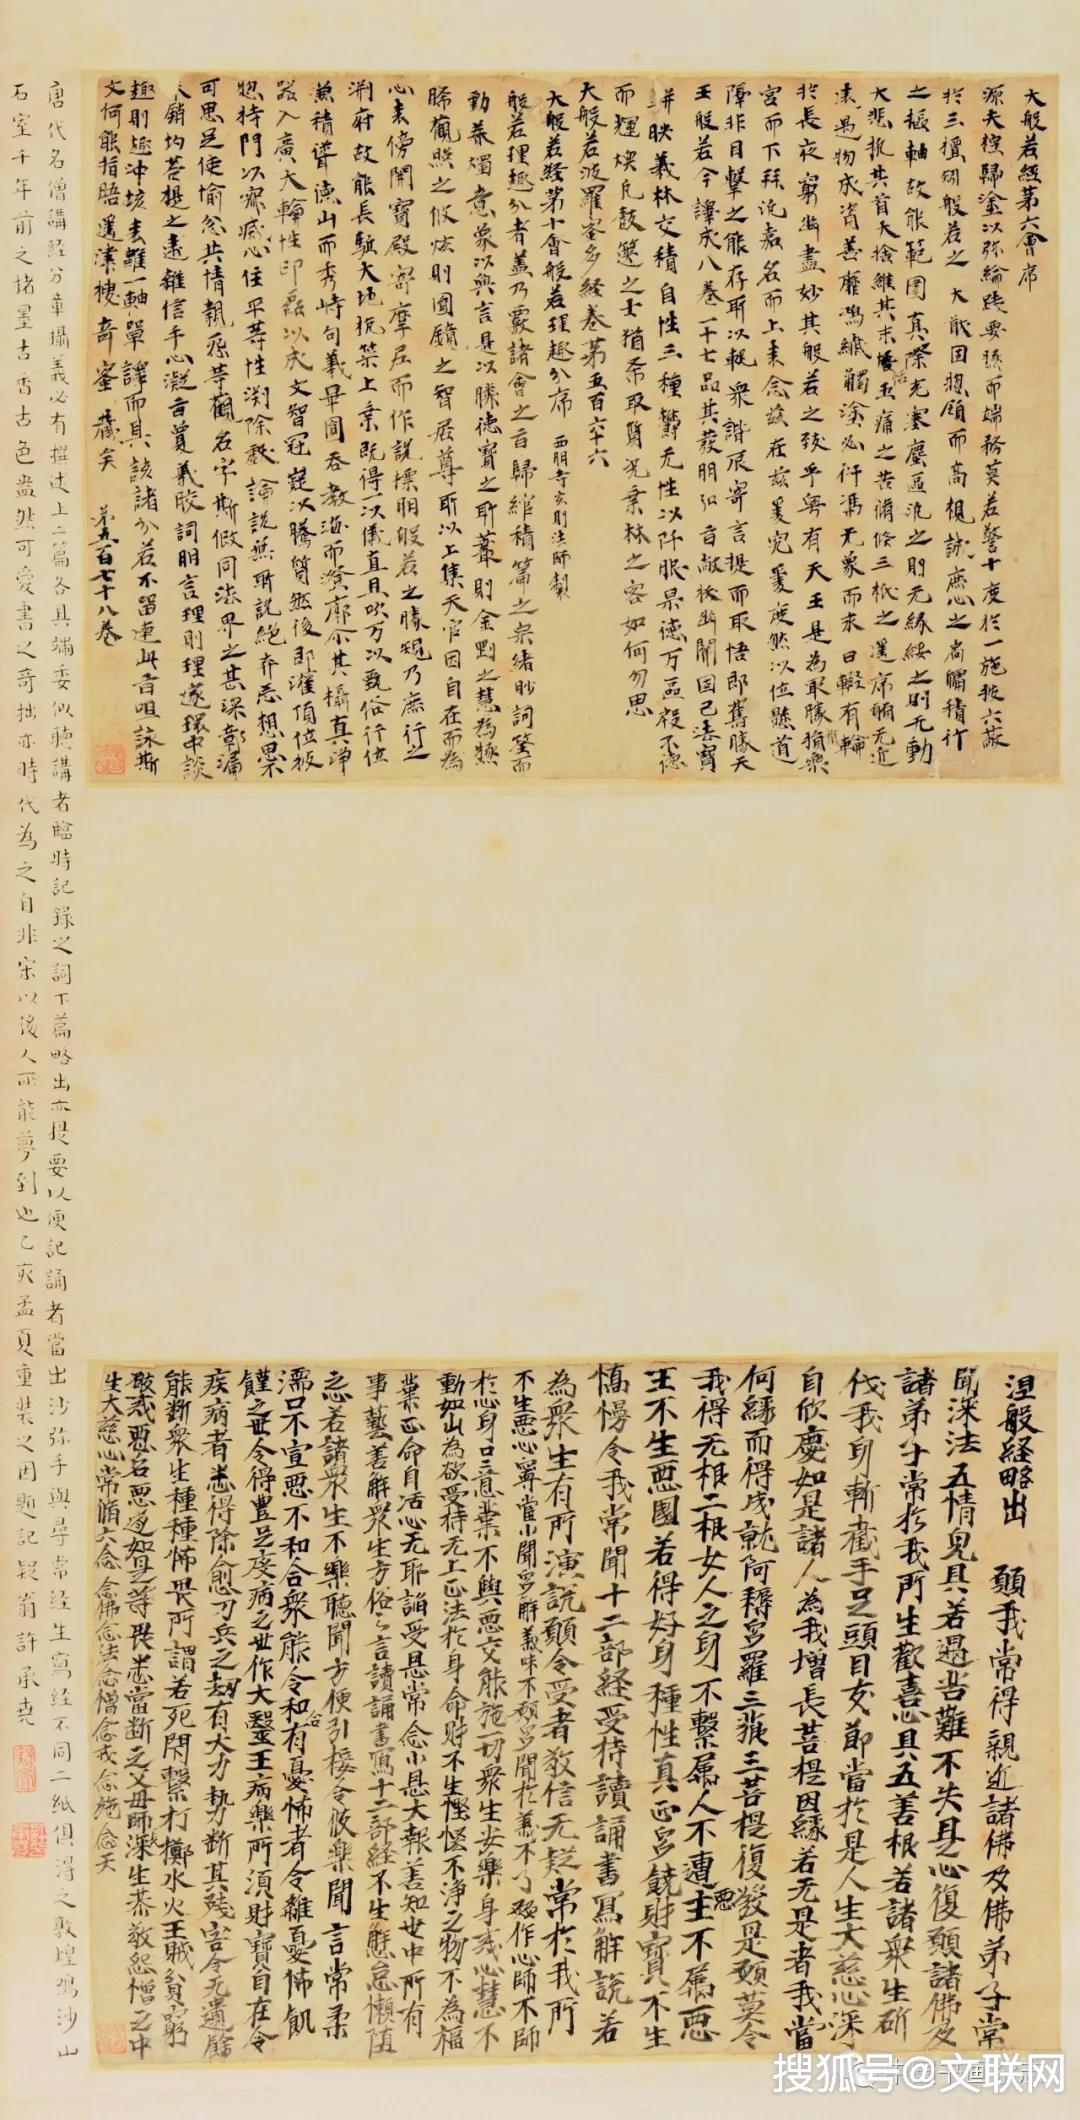 大般若經第六會序
源夫控歸塗以弥綸踐要極而端務莫若警十度於一施披六蔽
於三檀矧般若之大猷固惣領而高視誠庶心之扃鐍積行
之樞軸故能範圍真際充塞塵區汎之則无緣綏之則无動
大悲抵其首大捨維其末憂至痛之苦脩俢三祇之遥序膺无近
遠遇物成資善靡鴻纖觸塗必衍馮无象而永日輟有輪
於長夜窮幽盡妙其般若之致乎粵有天王是為最勝獨樂
宮而下拜洗嘉名而上表念茲在茲爰究爰度然以位懸道
障非目擊之能存所以軌衆諧辰寄言提而取悟即舊勝天
王般若今譯成八卷一十七品其發明弘旨敞柝幽關固已法寳
駢映義林交積自性三種欝无性以阡眠果德万區
而輝煥凡鼓篋之士猶希取質况棄林之客如何勿思
大般若波羅蜜多經卷第五百六十六
大般若經第十會般若理趣分序　西明寺玄則法師製
般若理趣分者盖乃覈諸會之旨歸綰積篇之宗緒眇詞筌而
動眷燭意象以興言是以勝德寳之所叢則金剛之慧為極
睎觀照之攸炫則圓鏡之智居尊所以上集天宮因自在而為
心表傍開寳殿寄摩尼而作說摽明般若之勝規乃庶行之
淵府故能長驅大地梳築上乘既得一以儀真且吹万以甄俗行位
兼積聳德山而秀峙句義畢圓吞教海而澄廓尒其攝真淨
器入廣大輪性印磊以成文智冠嶷以騰質然後即灌頂位披
惣持門以寂感心住平等性淵除戲論說無所說絕弃忘想思不
可思足使愉忿共情親怨等觀名字斯假同法界之甚深彰漏
未銷均菩提之遠離信手心凝旨夐義皎詞明言理則理邃環中談
趣則趣冲垓表雖一軸單譯而具該諸分若不留連此旨咀詠斯
文何能指晤遥津捷奇蜜藏矣　第五百七十八卷
涅般經略出　願我常得親近諸佛及佛弟子常
聞深法五情完具若遇苦難不失是心復願諸佛及
諸弟子常於我所生歡喜心具五善根若諸衆生斫
伐我身斬截手足頭目支節當於是人生大慈心深
自欣慶如是諸人為我增長菩提因緣若无是者我當
何緣而得成就阿耨多羅三藐三菩提復發是願莫令
我得无根二根女人之身不繫属人不遭惡主不属惡
王不生惡國若得好身種性真正多饒財寳不生
憍慢令我常聞十二部経受持讀誦書寫解說若
為衆生有所演說願令受者敬信无疑常於我所
不生惡心寧當小聞多解義味不願多聞於義不了願作心師不師
於心身口意業不與惡交能施一切衆生安樂身戒心慧不
動如山為欲受持无上正法於身命財不生慳悋不淨之物不為福
業正命自活心无耶諂受恩常念小恩大報善知世中所有
事藝善解衆生方俗之言讀誦書寫十二部経不生懈怠懶墮
之心若諸衆生不樂聽聞方便引接令彼樂聞言常柔
濡口不宣惡不和合衆能令和合有憂怖者令離憂怖飢
饉之世令得豊足疫病之世作大毉王病藥所須財寳自在令
疾病者悉得除愈刀兵之劫有大力勢斷其殘害令无遺餘
能斷衆生種種怖畏所謂若死閇繫打擲水火王賊貧窮
破戒惡名惡道如是等畏悉當斷之父母師長深生恭敬怨憎之中
生大慈心常脩六念念佛念法念僧念戒念施念天
唐代名僧講経分章攝義必有撰述上二篇各具端委似聽講者臨時記錄之詞下篇略出亦提要以便記誦者當出沙弥手與尋常経生寫経不同二紙俱得之敦煌鳴沙山
石室千年前之楮墨古香古色盎然可愛書之奇拙亦時代為之自非宋以後人所能夢到也乙亥孟夏重裝之因題記疑翁許承堯
搜狐号@文联网